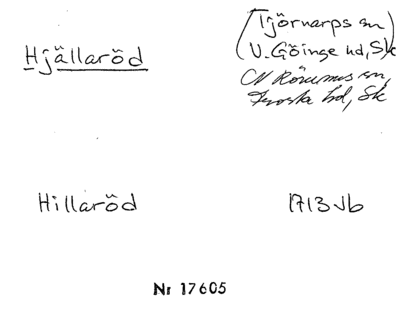 Hjällaröd
(Tjörnarps sn)
(V. Göinge hd, Sk)
N Rörums sn,
Frosta hd, Sk
Hillaröd
1713 Jb
Nr 17605